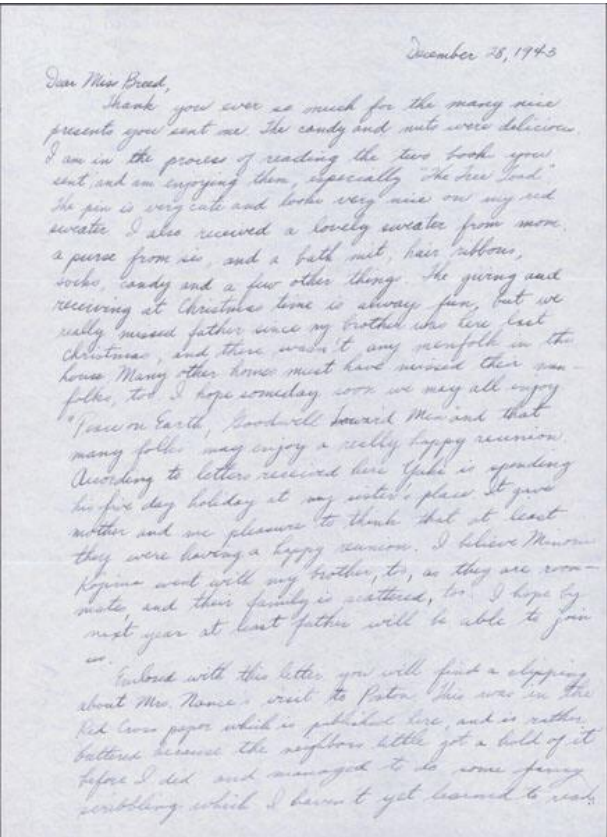 December 28, 1943
Dear Miss Breed,
Thank you ever so much for the many nice
presents you sent me. The candy and nuts were delicious.
I am in the process of reading the two book you
sent, and am enjoying them, especially "The Tree Toad"
The pin is very cute and looks very nice on my red
sweater. I also received a lovely sweater from mom,
a purse from sis, and a bath mit, hair ribbons,
socks, candy and a few other things. The giving and
receiving at Christmas time is alway fun, but we
really missed father since my brother was here last
Christmas, and there wasn't any menfolk in the
house. Many other homes must have missed their men-
folks, too. I hope someday soon we may all enjoy
"Peace on Earth, Goodwill Toward Men" and that
many folks may enjoy a really happy reunion.
According to letters received here Yuki is spending
his five day holiday at my sister's place. It gave
mother and me pleasure to think that at least
they were having a happy reunion. I believe
went with my brother, to, as they are room-
mate, and their family is scattered, too. I hope by
next year at least father will be able to join
us.
Enclosed with this letter you will find a clipping
about Mrs. Nance's visit to Poston. This was in the
Red Cross paper which is published here, and is rather
battered because the neighbors little got a hold of it
before I did and managed to do some
scribbling which I haven't yet learned to read.